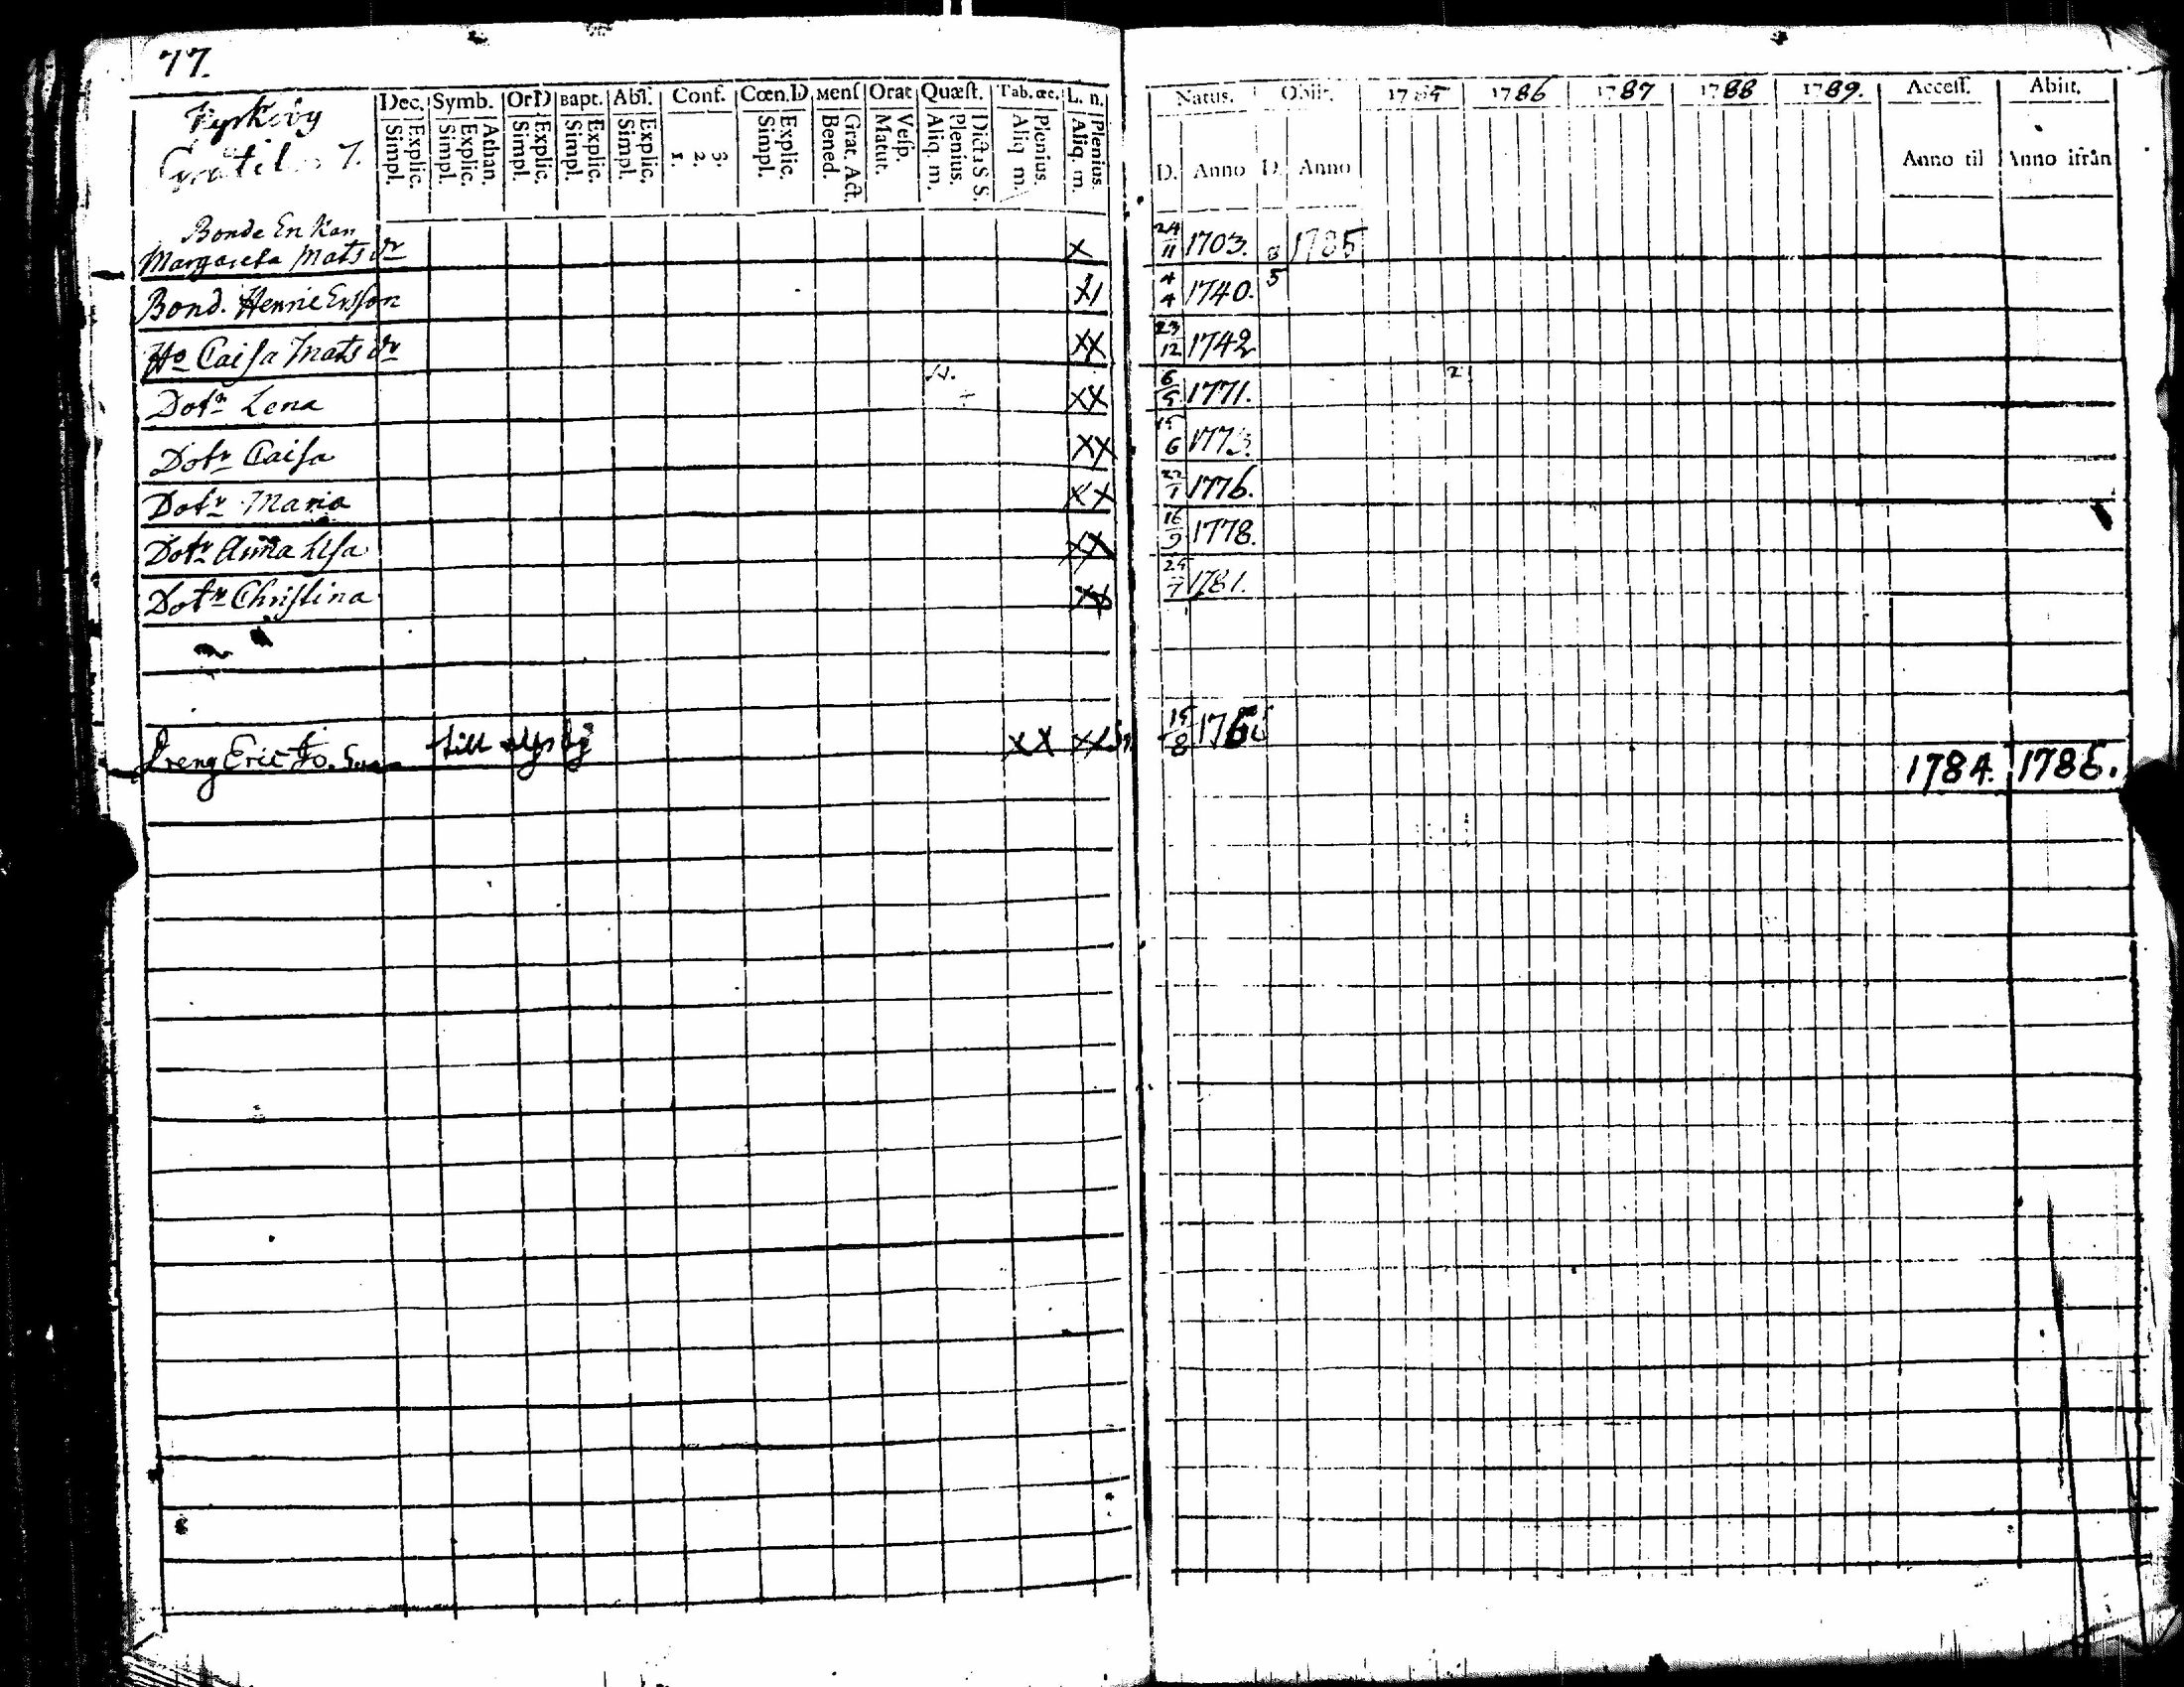 77.
Dec. Symb. OrD Bapt. Abſ. Conf. Cœn.D Menſ Orat Quæſt. Tab. œc. L. n. Natus. Obiit. 1785 1786 1787 1788 1789. Acceſſ. Abiit.
Explic. Simpl. Athan. Explic. Simpl. Explic. Simpl. Explic. Simpl. Explic. Simpl. 3. 2. 1. Explic. Simpl. Grat. Act. Bened. Veſp. Matut. Dicta S S. Plenius. Aliq. m. Plenius. Aliq. m. Plenius. Aliq. m. D. Anno D. Anno Anno til Anno ifrån
7.
Bonde Enkan
Margareta Mats dr x 24/11 1703. 8/5 1785
Bond. Henric Ersson x1 4/4 1740.
Ho Caisa Mats dr xx 23/12 1742
Dotr Lena xx 6/9 1771. 2
Dotr Caisa xx 15/6 1773.
Dotr Maria xx 22/1 1776.
Dotr Anna Lisa xx 16/9 1778.
Dotr Christina xx 1781.
Dreng Eric till xx xx 15/8 1784. 1786.